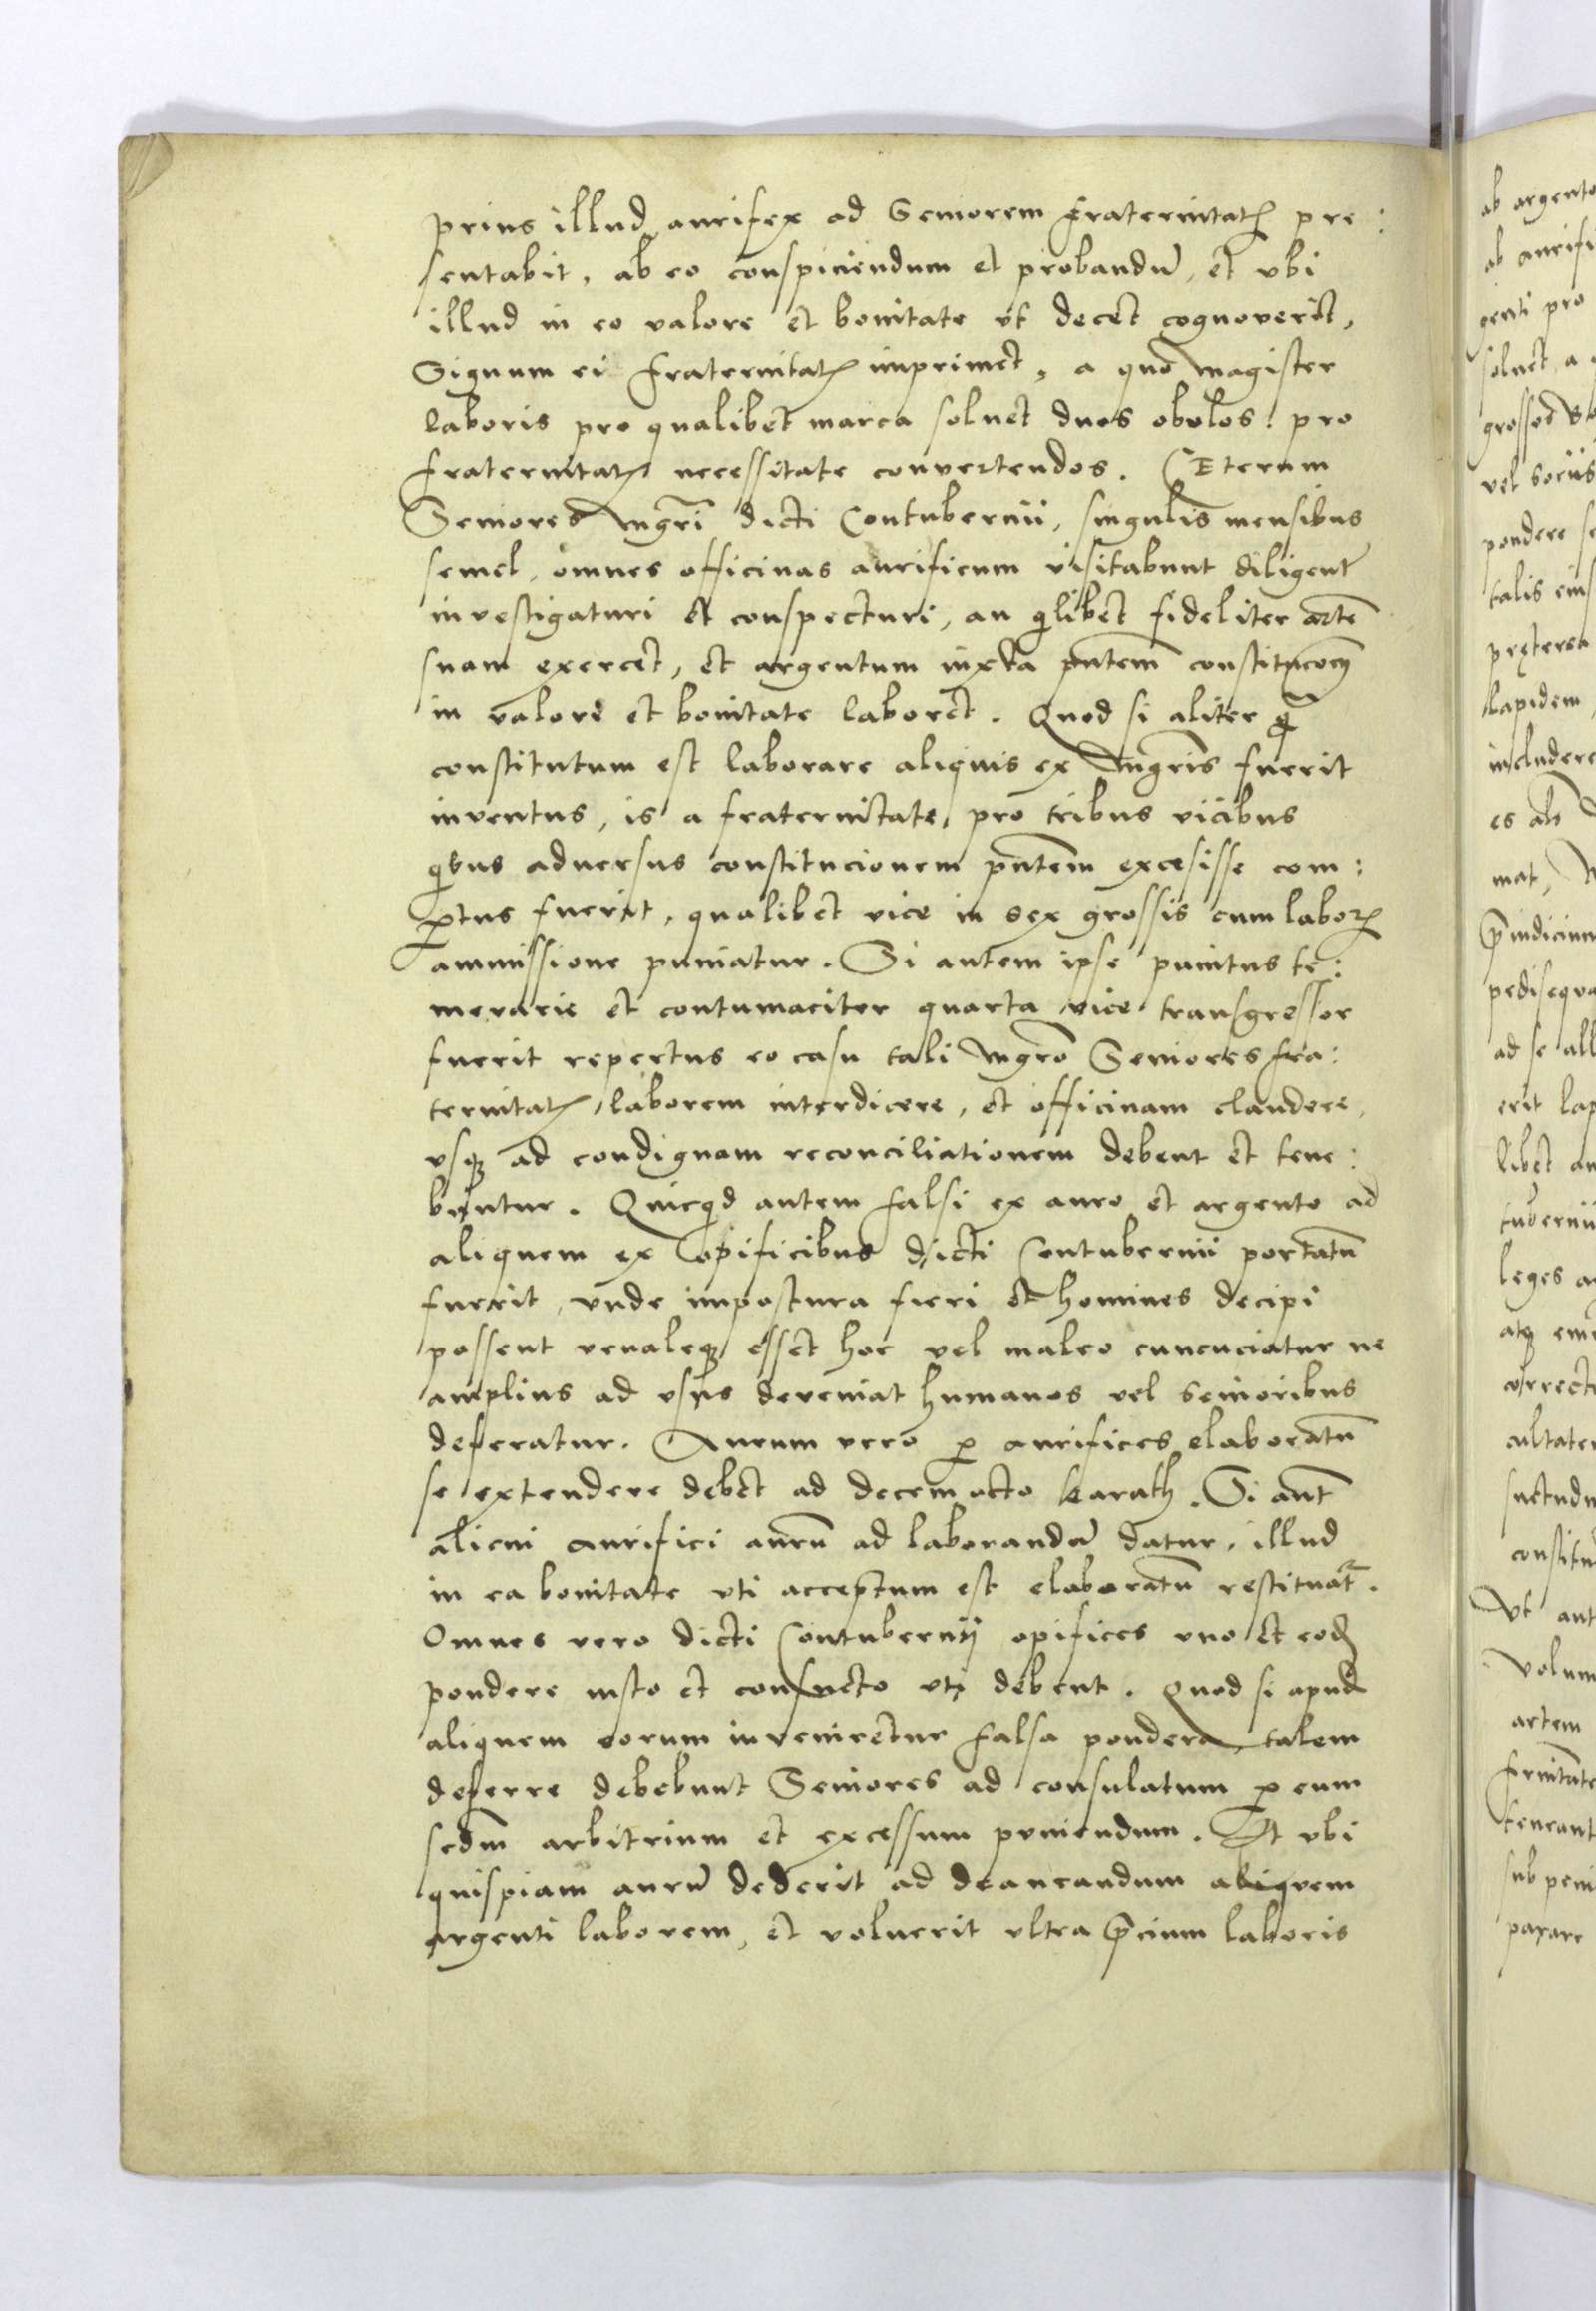 prius illud aurifex ad Seniorem fraternitatꝭ pre:
sentabit, ab eo conspiciendum et probandũ, et vbi
illud in eo valore et bonitate vt decet cognouerit,
Signum ei fraternitatꝭ imprimet, a quo magister
laboris pro qualibet marca soluet duos obolos: pro
fraternitatꝭ necessitate convertendos. CEterum
Seniores mgr̃i dicti Contubernii, singulis mensibus
semel, omnes officinas aurificum visitabunt diligent̃
investigaturi et conspecturi, an q̃libet fideliter artẽ
suam exercet, et argentum iuxta pñtem constitucõem
in valore et bonitate laboret. Quod si aliter q̃
constitutum est laborare aliquis ex Mgr̃is fuerit
inventus, is a fraternitate, pro tribus vicibus
q̃bus aduersus constitucionem pñtem excesisse com:
ꝑtus fuerit, qualibet vice in sex grossis cum laborꝭ
ammissione puniatur. Si autem ipse punitus te:
merarie et contumaciter quarta vice transgressor
fuerit repertus eo casu tali mgr̃o Seniores fra:
ternitatꝭ laborem interdicere, et officinam claudere,
vsqꝫ ad condignam reconciliationem debent et tene:
buntur. Quicq̃d autem falsi ex auro et argento ad
aliquem ex opificibus dicti Contubernii portatũ
fuerit, vnde impostura fieri et homines decipi
possent venaleqꝫ esset hoc vel maleo cuncuciatur ne
amplius ad vsus deveniat humanos vel senioribus
deferatur. Aurum vero ꝑ aurifices elaboratũ
se extendere debet ad decem octo karath. Si aut̃
alicui aurifici aurũ ad laborandũ datur, illud
in ea bonitate vti acceptum est elaboratũ restituat̃.
Omnes vero dicti Contubernij opifices vno et eodẽ
pondere iusto et consueto vti debent. Quod si apud
aliquem eorum invenirentur falsa pondera, talem
deferre debebunt Seniores ad consulatum ꝑ eum
sedm̃ arbitrium et excessum puniendum. Et vbi
quispiam aurũ dederit ad deaurandum aliquem
argenti laborem, et voluerit vltra p̃cium laboris
ab argento
ab aurifi
genti pro
soluet a
grossos
vel socius
pondere se
talis eius
pręterea
lapidem
includere
es ab
mat,
p̃iudicium
pedisequa
ad se all
erit lap
libet au
tubernii
leges a
atqꝫ
correct
cultate
suetudi
constitu
Vt aut
volum
artem
frñitate
teneant
sub pen
parare